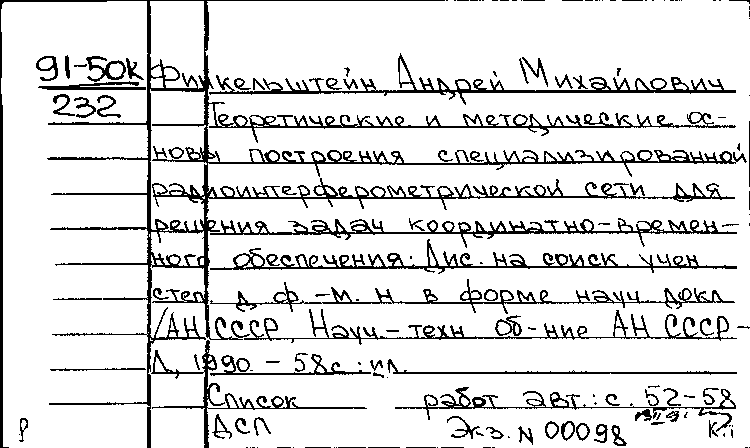 91-50к Финкельштейн, Андрей Михайлович
232 Теоретические и методические ос-
новы построения специализированной
радиоинтерферометрической сети для
решения задач координатно-времен-
ного обеспечения: Дис. на соиск. учен
степ. д. ф.-м. н. в форме науч. докл
/АН СССР, Науч.-техн об-ние АН СССР-
Л, 1990. - 58с.: ил.
Список работ авт.: с. 52-58
ДСП Экз. N 00098